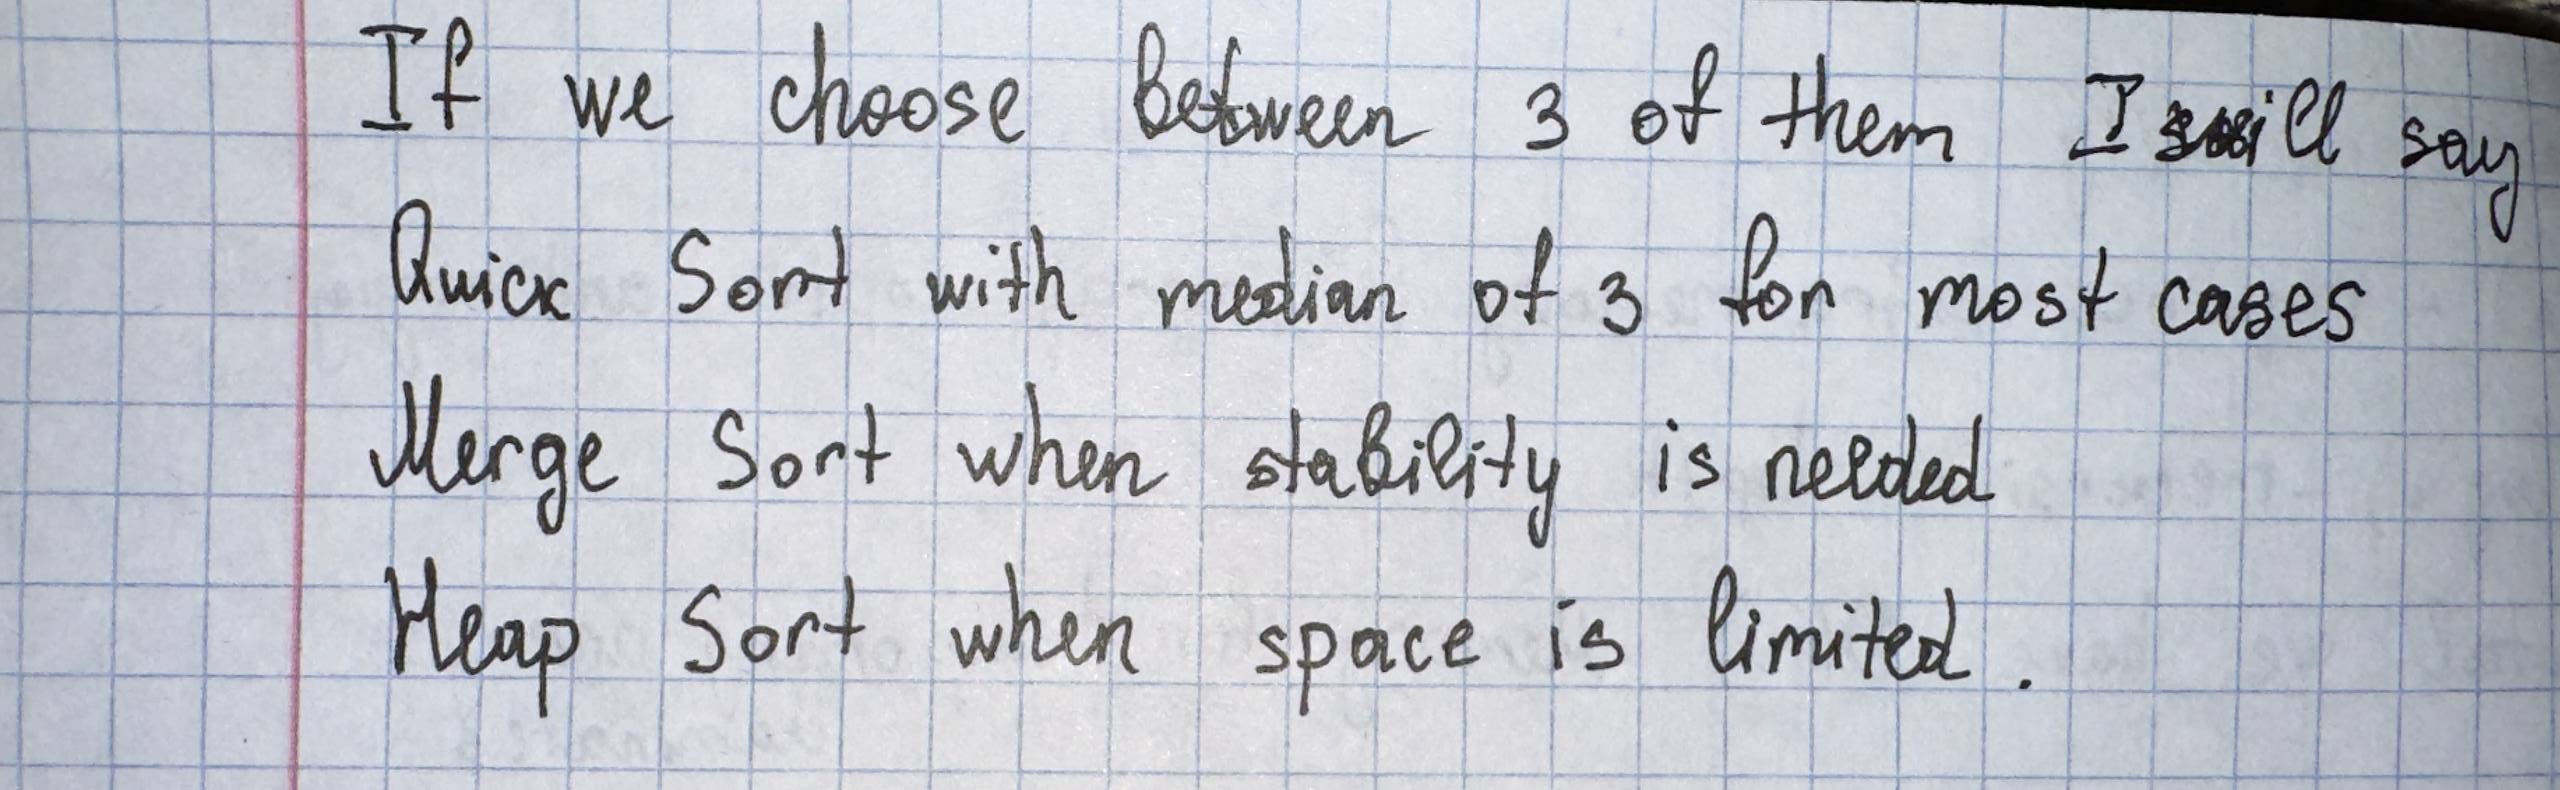 If we choose between 3 of them I will say
Quick Sort with median of 3 for most cases
Merge Sort when stability is needed
Heap Sort when space is limited.